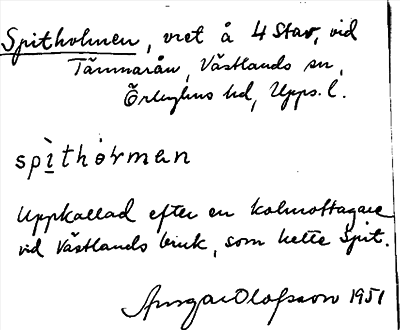 Spitholmen, vret å 4 Stav, vid
Tämnarån, Västlands sn,
Örbyhus hd, Upps. l.
spìthòrman
Uppkallad efter en kolmottagare
vid Västlands bruk, som hette Spit.
Ansgar Olofsson 1951